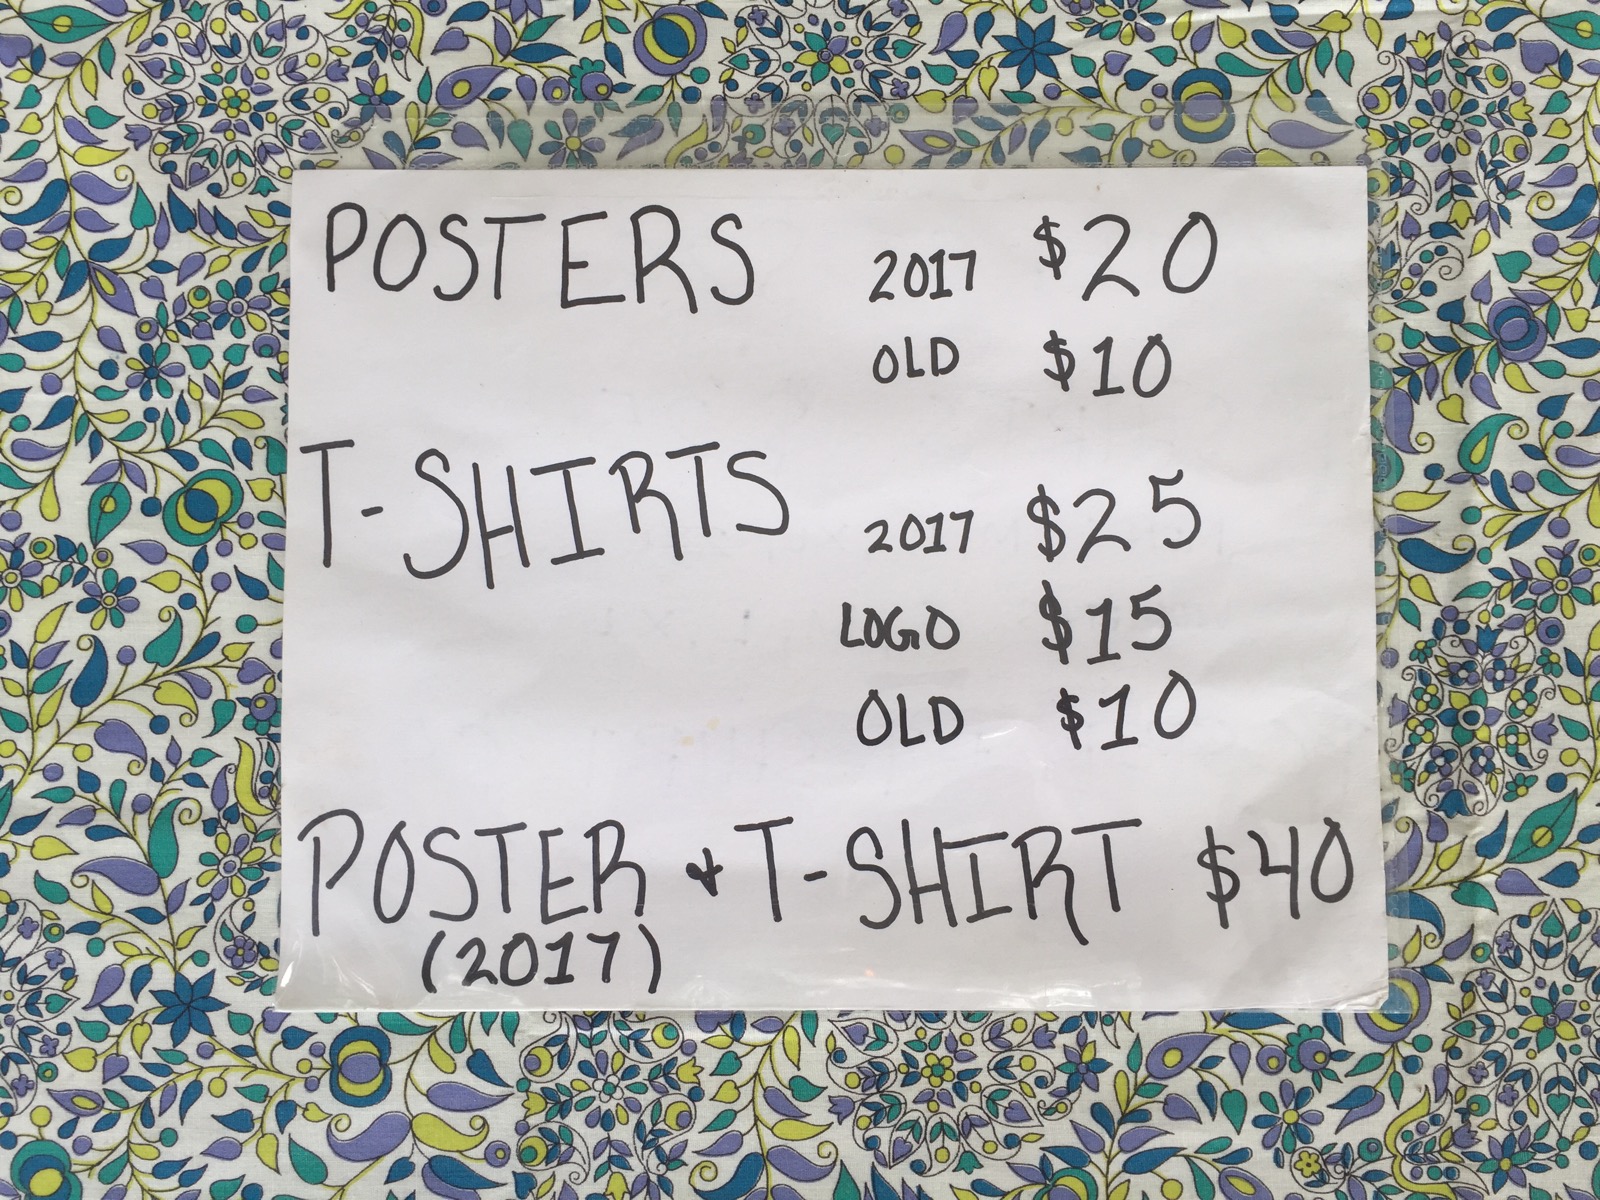 POSTERS 2017 $20
OLD $10
T-SHIRTS 2017 $25
LOGO $15
OLD $10
POSTER & T-SHIRT $40
(2017)